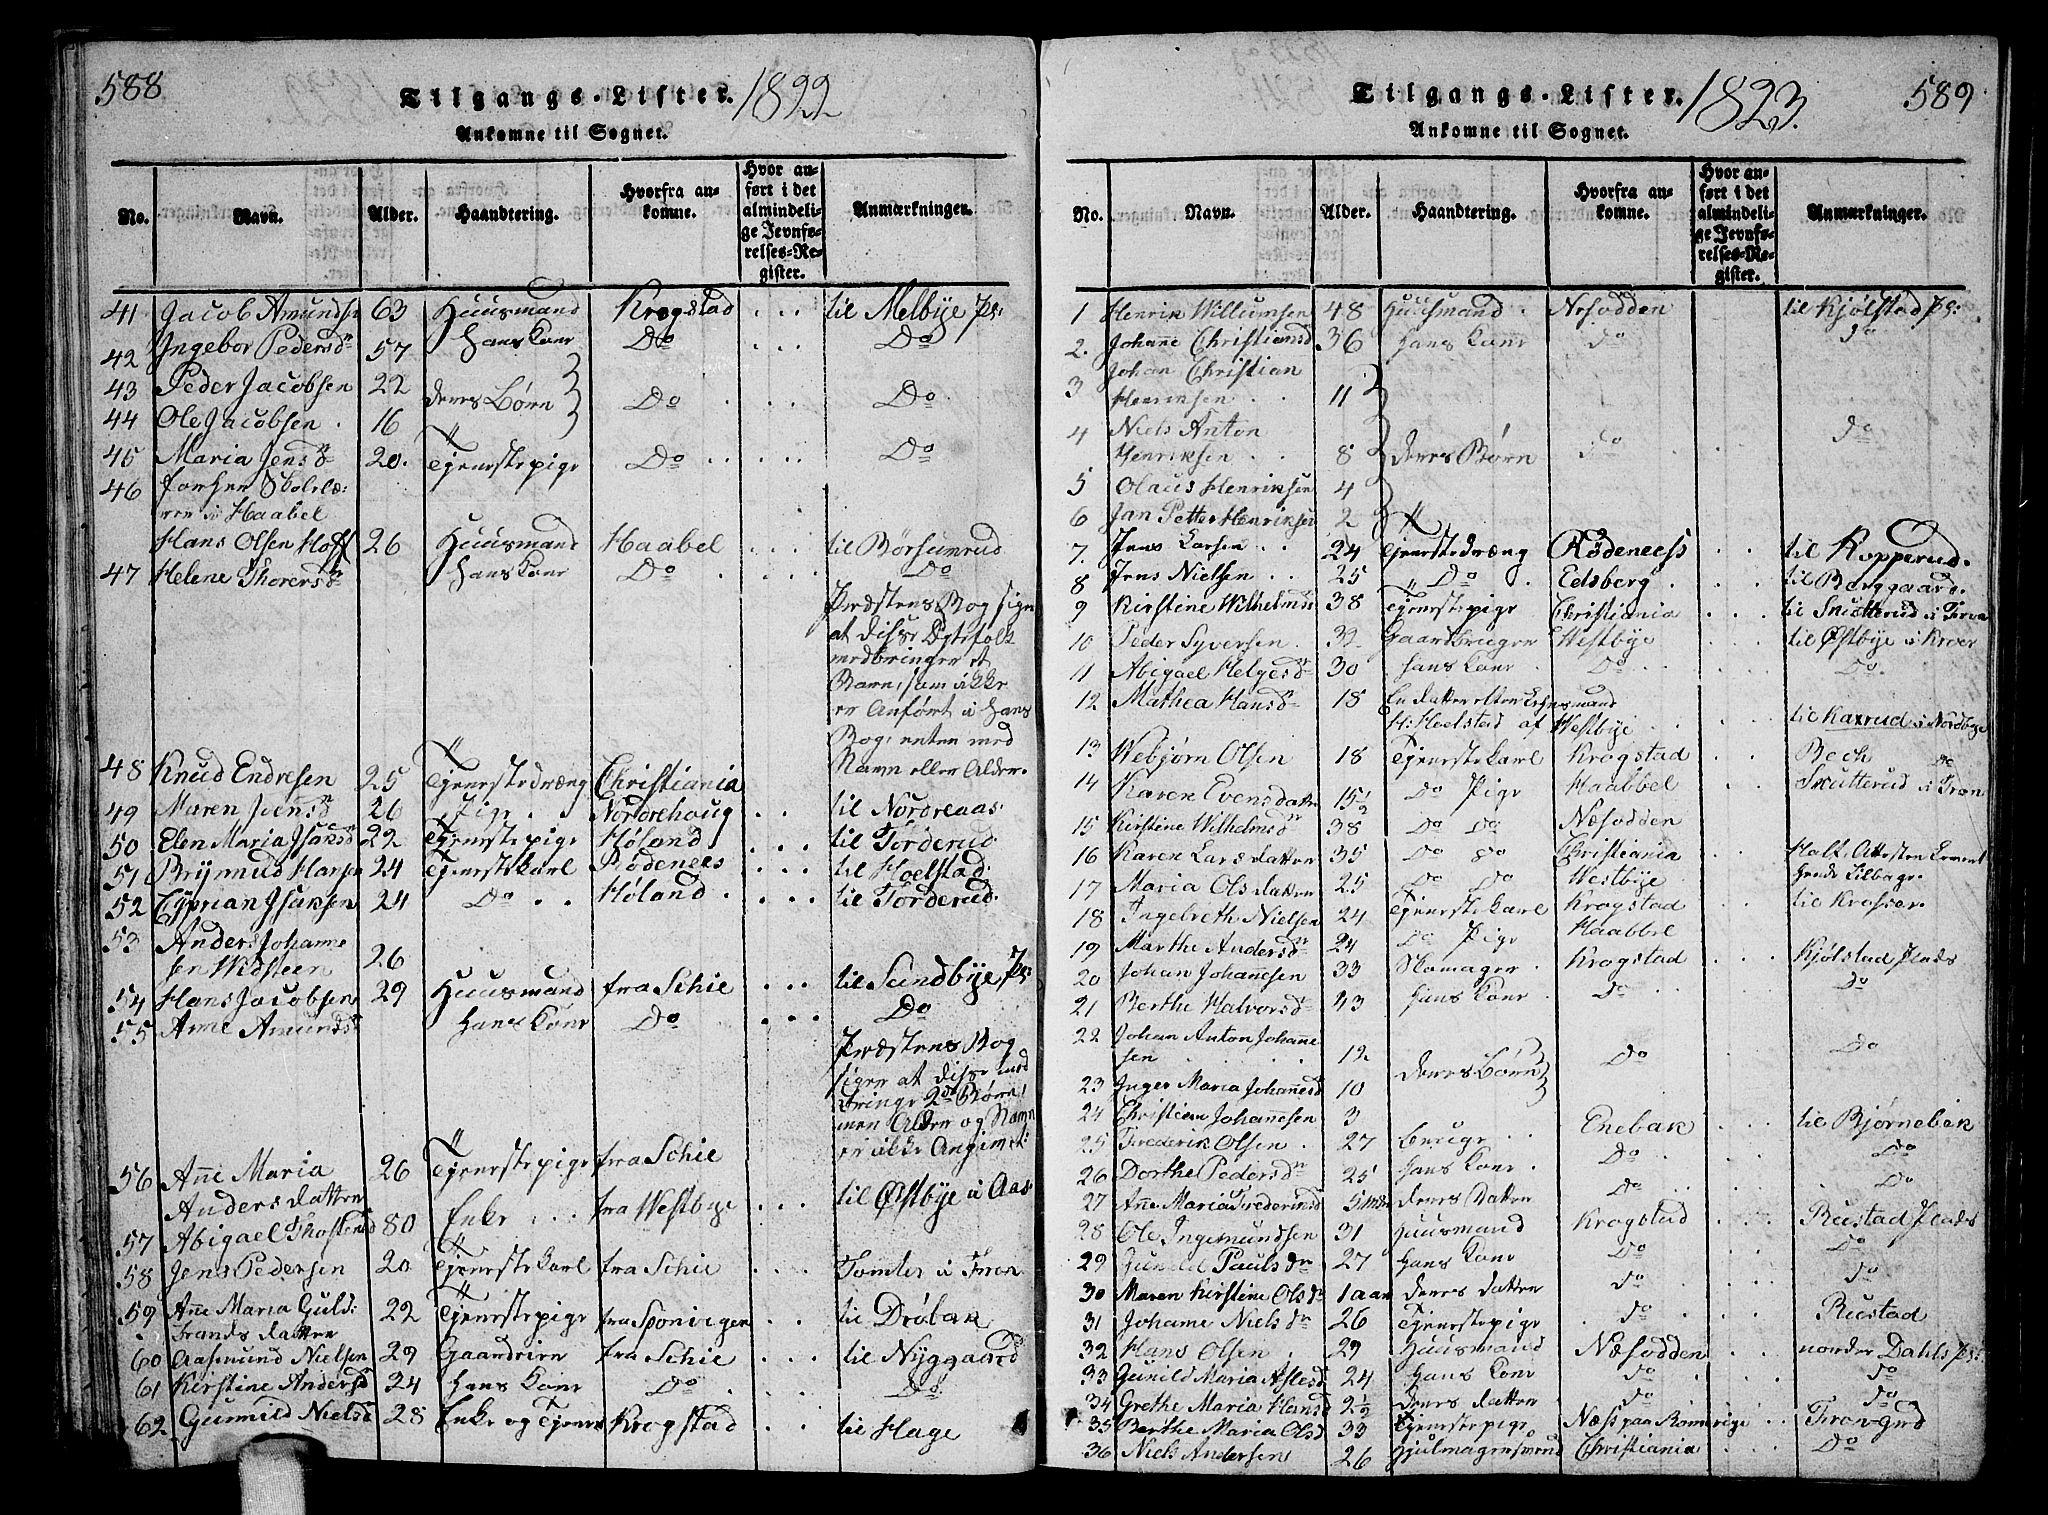 588
Tilgangs-Lister. 1822
Ankomne til Sognet.
No. Navn. Alder. Haandtering. Hvorfra ankomne. Hvor anført i det almindelige Jevnførelses-Register. Anmærkninger.
41 Jacob Amundsen 63 Huusmand Krogstad til Melbye Ps:
42 Ingebor Pedersdr 57 Hans Kone Do Do
43 Peder Jacobsen 22 deres Børn Do Do
44 Ole Jacobsen 16
45 Maria Jensdr 20. Tjenestepige Do Do
46 forhen Skolelærer i Haabel
Hans Olsen Hoff 26 Huusmand Haabel til Børsumrud
47 Helene Thoresdr Hans Kone Do Do
Præstens Bog siger
at disse Ægtefolk
medbringer et
Barn, som ikke
er Anført i hans
Bog, enten med
Navn eller Alder.
48 Knud Endresen 25 Tjenestedræng Christiania
49 Maren Jensdr 26 Pige Nordrehoug til Nordreaas
50 Elen Maria Isaksdr 22 Tjenestepige Høland til Torderud
51 Brynmud Hansen 24 Tjenestekarl Rødenees til Hoelstad
52 Cyprian Isaksen 24 Do Høland til Torderud
53 Anders Johannesen Widsteen 26
54 Hans Jacobsen 29 Huusmand fra Schie til Sundbye Ps:
55 Anne Amundsdr Hans Kone Do Do
Præstens Bog
siger at disse med
bringe 2de Børn,
men Alder og Navn
er ikke Angivet:
56 Anne Maria Andersdatter 26 Tjenestepige fra Schie
57 Abigael Thostensd 80 Enke fra Westbye til Østbye i Aas
58 Jens Pedersen 20 Tjenestekarl fra Schie Tomter i Fron
59 Anne Maria Guldbrandsdatter 22 Tjenestepige fra Sponvigen til Drøbak
60 Aasmund Nielsen 29 Gaardeier fra Schie til Nyggaard
61 Kirstine Andersd 24 Hans Kone Do Do
62 Gunnild Nielsd 28 Enke og Tjenest Krogstad til Hage
589
Tilgangs-Lister. 1823.
Ankomne til Sognet.
No. Navn. Alder. Haandtering. Hvorfra ankomne. Hvor anført i det almindelige Jevnførelses-Register. Anmærkninger.
1 Henrik Willumsen 48 Huusmand Nesodden til Kjølstad Ps:
2. Johane Christiansd 36 Hans Kone do do
3 Johan Christian Henriksen 11
4 Niels Anton Henriksen 8 deres Børn do do
5 Olaus Henriksen 4
6 Jan Petter Henriksen 2
7. Jens Larsen 24 Tjenestedræng Rødeneess til Kopperud.
8 Jens Nielsen 25 Do Edsberg til Borggaard.
9 Kirstine Wilhelmsd 38 Tjenestepige Christiania til Skutterud i Fron
10 Peder Syversen 32 Gaardbruger Westbye til Østbye i Kroer
11 Abigael Helgesdr 30 Hans Kone Do Do
12 Mathea Hansdr 18 En datter efter Huusmand
H: Hoelstad af Westbye til Kaxrud i Nordbye
13 Webjørn Olsen 18 Tjenestekarl Krogstad Bech
14 Karen Evensdatter 15½ Do Pige Haabbel Skutterud i Fron
15 Kirstine Wilhelmsdr 38 Do Do Næsodden
16 Karen Larsdatter 35 Do Do Christiania
17 Maria Olsdatter 25 Do Do Westbye
18 Ingebreth Nielsen 24 Tjenestekarl Krogstad til Krosser
19 Marthe Andersdr 24 Do Pige Haabbel
20 Johan Johanesen 33 Skomager Krogstad Kjølstad Plads
21 Berthe Halvorsdr 43 Hans Kone Do Do
22 Johan Anton Johannesen 12 deres Børn Do Do
23 Inger Maria Johanesd 10
24 Christian Johanesen 3
25 Frederik Olsen 27 Beruge Enebak til Bjørnebek
26 Dorthe Pedersdr 25 Hans Kone Do Do
27 Anne Maria Frederiksd 5 mdr deres datter Do Do
28 Ole Ingemundsen 31 Huusmand Krogstad Rustad Plads
29 Gunild Paulsdr 27 Hans Kone Do Do
30 Maren Kirstine Olsdr 1 aar deres datter do do
31 Johanne Nielsdr 26 Tjenestepige do Rustad
32. Hans Olsen 29 Huusmand Næsodden norder Dahls Ps:
33 Gunild Maria Aslesd 24 Hans Kone do do
34 Grethe Maria Hansd 2½ deres datter do do
35 Berthe Maria Olsd 33 Tjenestepige Næss paa Romerige Fron-Grd
36 Niels Andersen 26 Hjulmagersvend Christiania Do